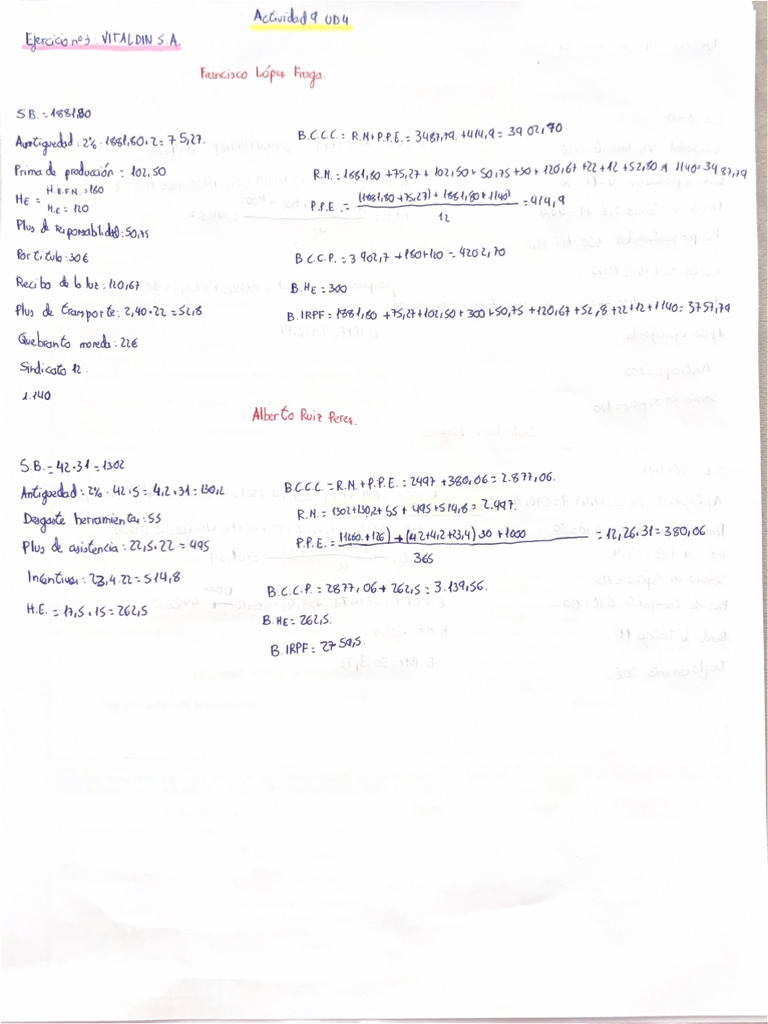 Actividad 9 UD4
Ejercicio nº3: VITALDIN S.A.
Francisco López Fraga.
S.B. = 1881,80
Antiguedad: 2% · 1881,80 · 2 = 75,27.
Prima de producción: 102,50
HE = H.E.F.M.: 180
H.E = 120
Plus de responsabilidad: 50,75
Por titulo: 30€
Recibo de la luz: 120,67
Plus de transporte: 2,40 · 22 = 52,8
Quebranto moneda: 22€
Sindicato 12.
1.140
B.C.C.C. = R.M + P.P.E. = 3487,79. + 414,9 = 3902,70
R.M. = 1881,80 + 75,27 + 102,50 + 50,75 + 30 + 120,67 + 22 + 12 + 52,80 + 1140 = 3487,79
P.P.E. = (1881,80 + 75,27) + 1881,80 + 1140) = 414,9
12
B.C.C.P. = 3902,7 + 180 + 120 = 4202,70
B.HE = 300
B.IRPF = 1881,80 + 75,27 + 102,50 + 300 + 50,75 + 120,67 + 52,8 + 22 + 12 + 1140 = 3757,79
Alberto Ruiz Perez.
S.B. = 42 · 31 = 1302
Antiguedad: 2% · 42 · 5 = 4,2 · 31 = 130,2
Desgaste herramienta: 55
Plus de asistencia: 22,5 · 22 = 495
Incentivos: 23,4 · 22 = 514,8
H.E. = 17,5 · 15 = 262,5
B.C.C.C. = R.M + P.P.E. : 2497 + 380,06 = 2.877,06.
R.M. = 1302 + 130,2 + 55 + 495 + 514,8 = 2.497.
P.P.E. = (1260. + 126) + (42 + 4,2 + 23,4) 30 + 1000 = 12,26 · 31 = 380,06
365
B.C.C.P. = 2877,06 + 262,5 = 3.139,56.
B.HE = 262,5.
B.IRPF = 2759,5.